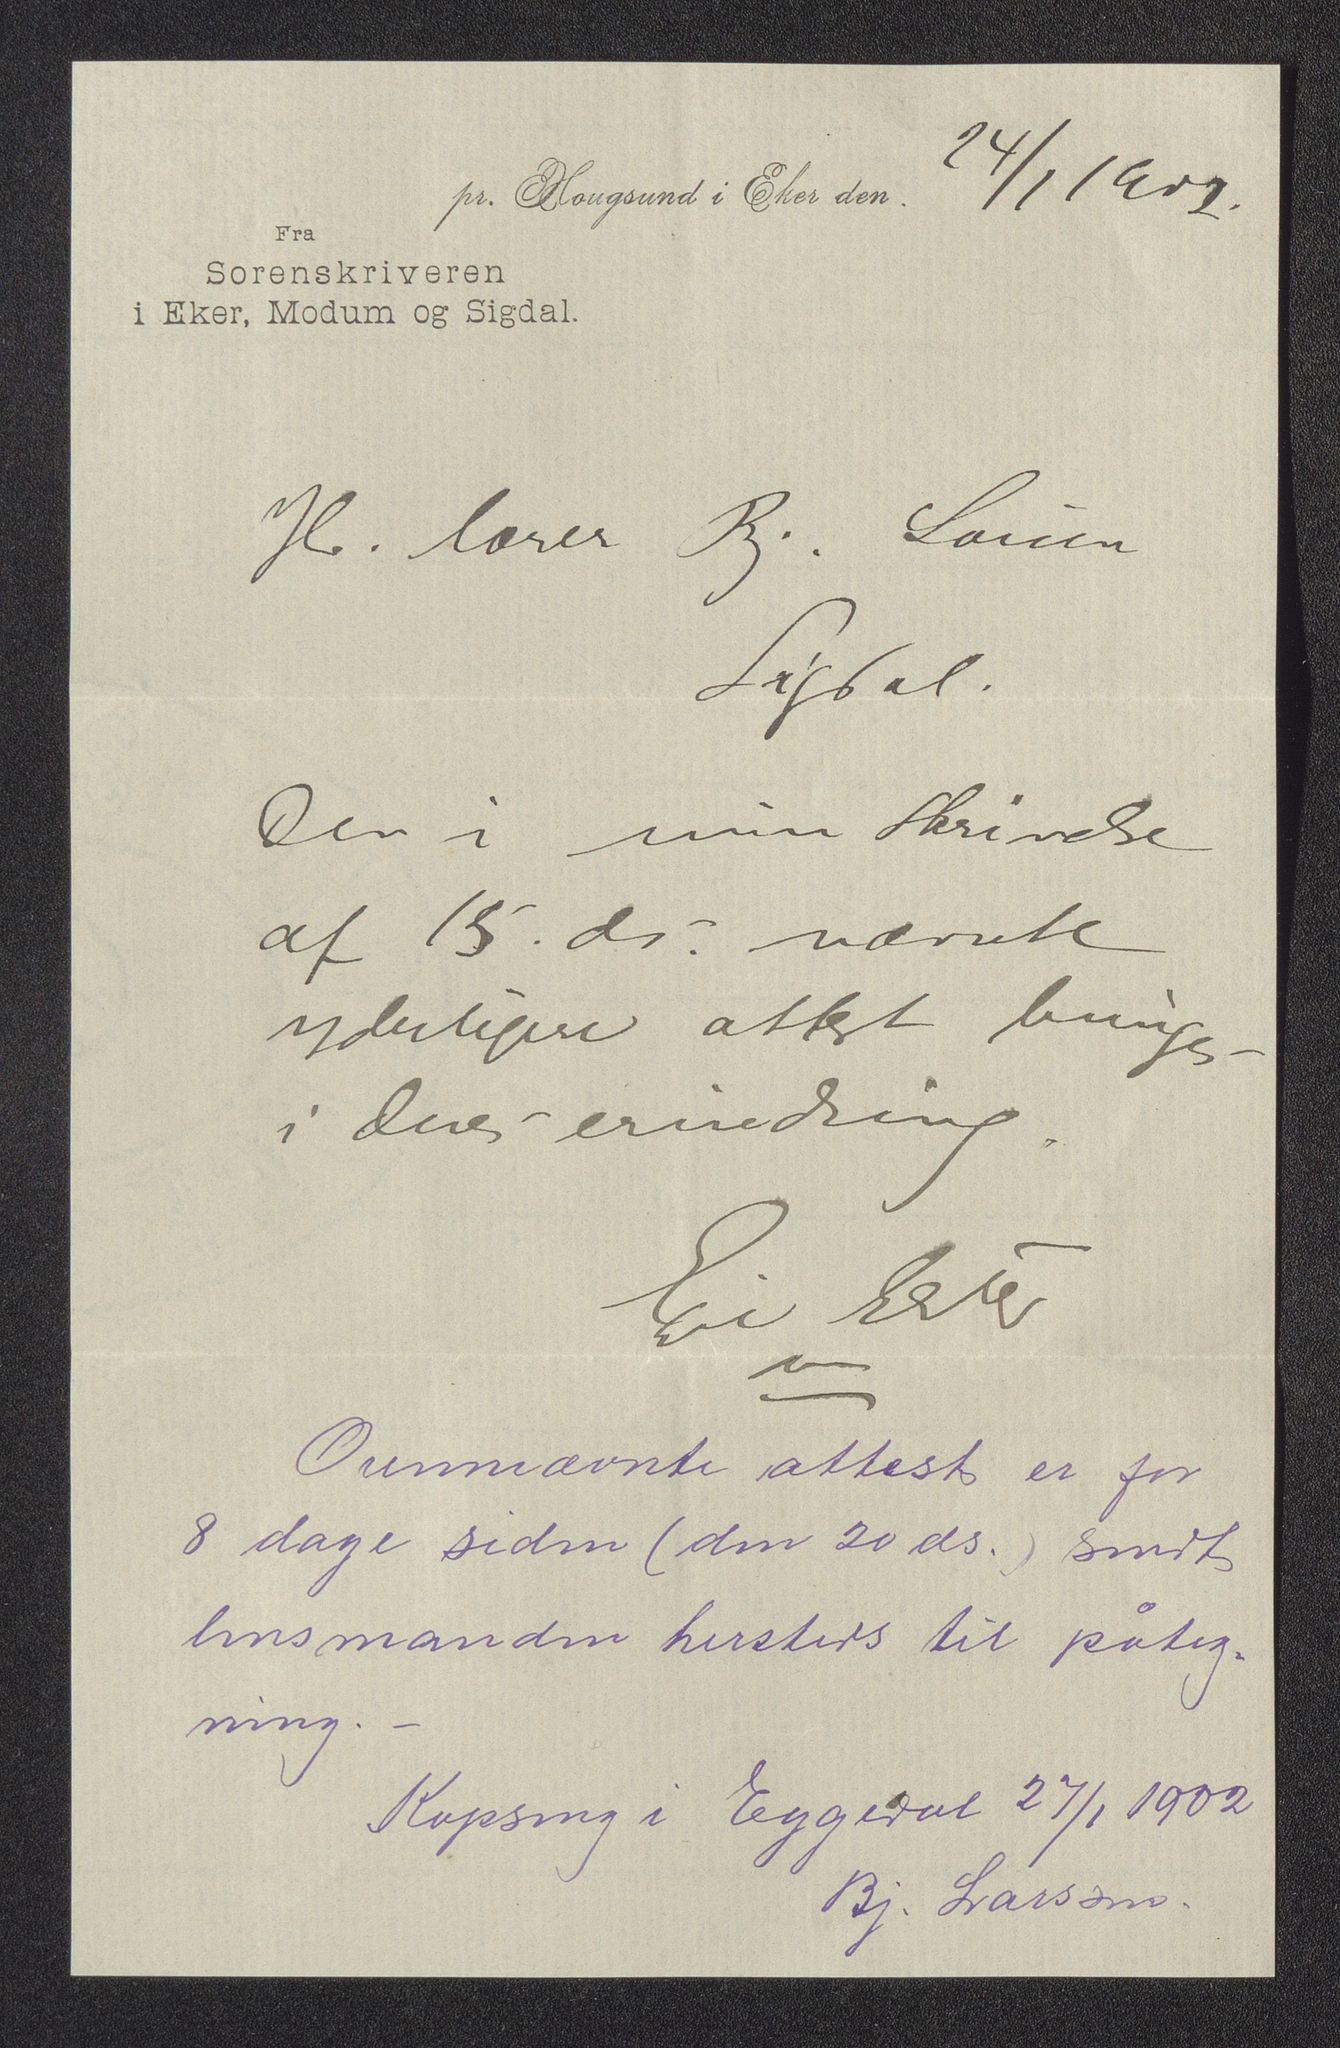 pr. Hougsund i Eker den 24/1 1902.
Fra
Sorenskriveren
i Eker, Modum og Sigdal.
Hr. lærer Bj.
Sigdal.
Den i min skrivelse
af 15. ds. nævnte
yderligere attest bringes
i Deres erindring.
Ovennævnte attest er for
8 dage siden (den 20 ds.) sendt
lensmanden hersteds til påteg-
ning. -
i Eggedal 27/1 1902
Bj. Larssen.